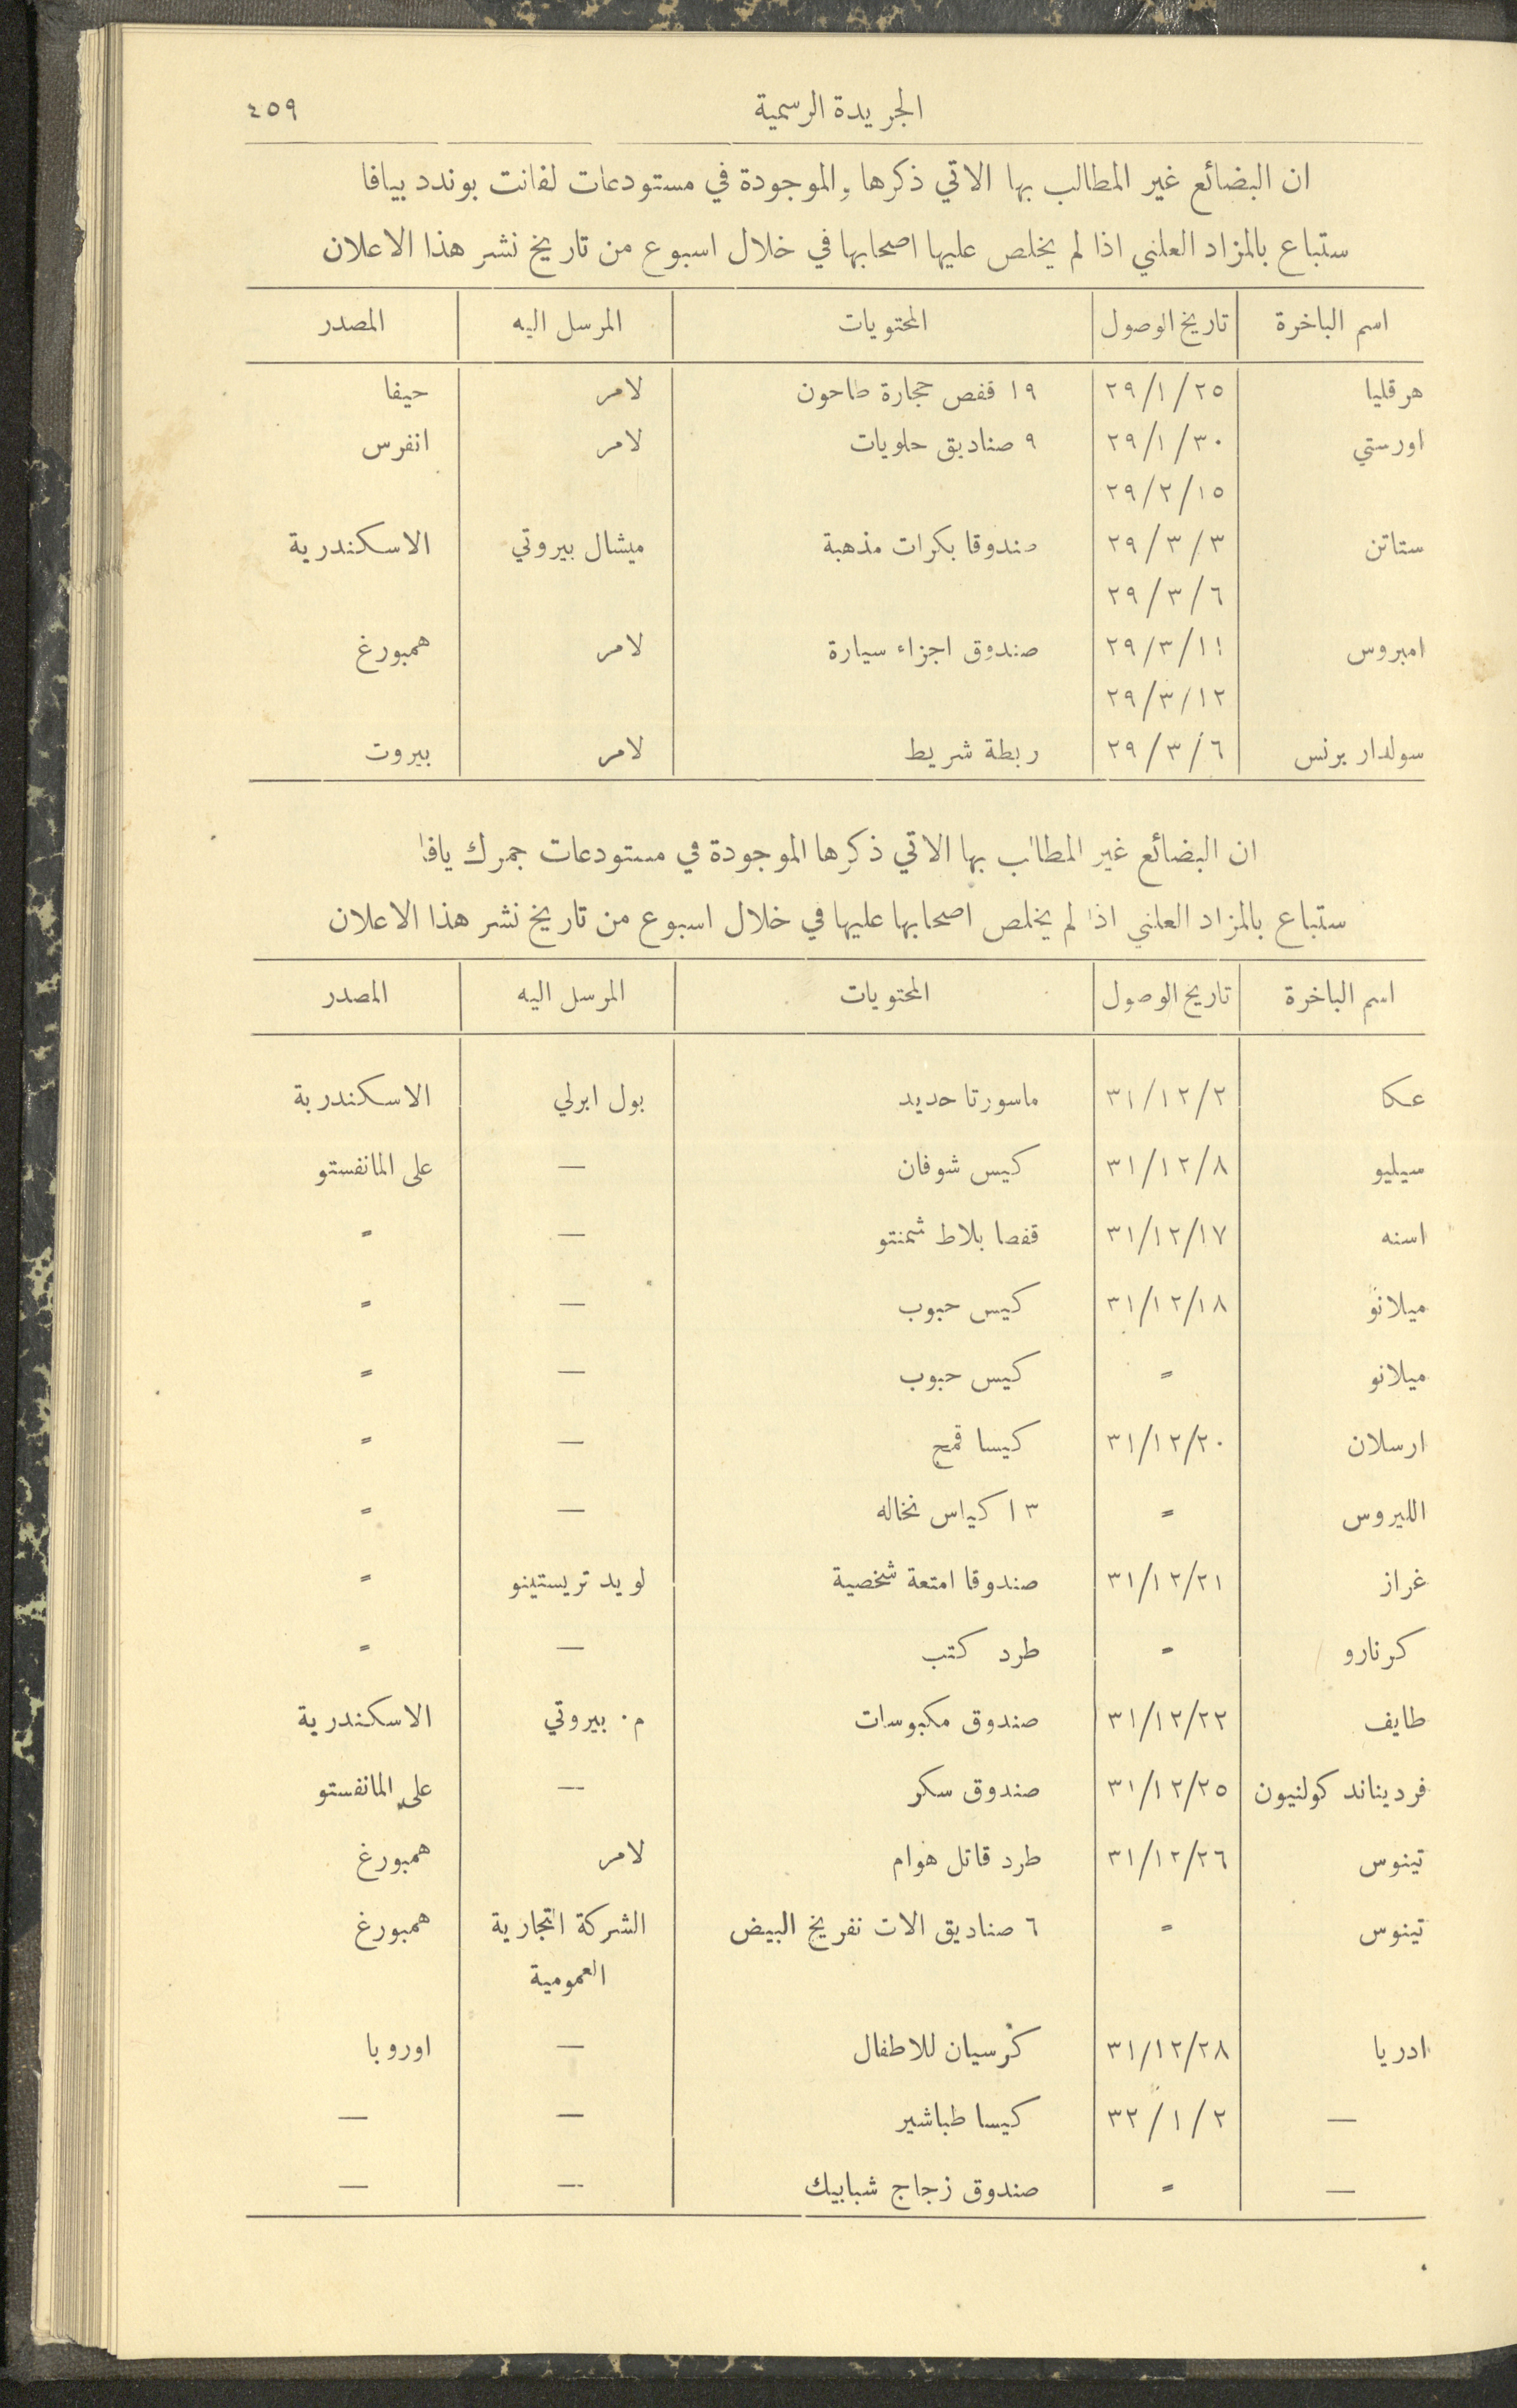 الجريدة الرسمية ٤٥٩
ان البضائع غير المطالب بها الاتي ذكرها والموجودة في مستودعات لفانت بوندد بيافا
ستباع بالمزاد العلني اذا لم يخلص عليها اصحابها في خلال اسبوع من تاريخ نشر هذا الاعلان
اسم الباخرة تاريخ الوصول المحتويات المرسل اليه المصدر
هرقليا ٢٩/١/٢٥ ١٩ قفص حجارة طاحون لامر حيفا
اورستي ٢٩/١/٣٠ ٩ صناديق حلويات لامر انفرس
٢٩/٢/١٥
ستاتن ٢٩/٣/٣ صندوقا بكرات مذهبة ميشال بيروتي الاسكندرية
٢٩/٣/٦
امبروس ٢٩/٣/١١ صندوق اجزاء سيارة لامر همبورغ
٢٩/٣/١٢
سولدار برنس ٢٩/٣/٦ ربطة شريط لامر بيروت
ان البضائع غير المطالب بها الاتي ذكرها الموجودة في مستودعات جمرك يافا
ستباع بالمزاد العلني اذا لم يخلص اصحابها عليها في خلال اسبوع من تاريخ نشر هذا الاعلان
اسم الباخرة تاريخ الوصول المحتويات المرسل اليه المصدر
عكا ٣١/١٢/٢ ماسورتا حديد بول ابرلي الاسكندرية
سيليو ٣١/١٢/٨ كيس شوفان — على المانفستو
اسنه ٣١/١٢/١٧ قفصا بلاط شمنتو — =
ميلانو ٣١/١٢/١٨ كيس حبوب — =
ميلانو = كيس حبوب — =
ارسلان ٣١/١٢/٢٠ كيسا قمح — =
الليروس = ٣ اكياس نخاله — =
غراز ٣١/١٢/٢١ صندوقا امتعة شخصية لويد تريستينو =
كرنارو = طرد كتب — =
طايف ٣١/١٢/٢٢ صندوق مكبوسات م. بيروتي الاسكندرية
فرديناند كولنيون ٣١/١٢/٢٥ صندوق سكر — على المانفستو
تينوس ٣١/١٢/٢٦ طرد قاتل هوام لامر همبورغ
تينوس = ٦ صناديق الات تفريخ البيض الشركة التجارية همبورغ
العمومية
ادريا ٣١/١٢/٢٨ كرسيان للاطفال — اوروبا
— ٣٢/١/٢ كيسا طباشير — —
— = صندوق زجاج شبابيك — —